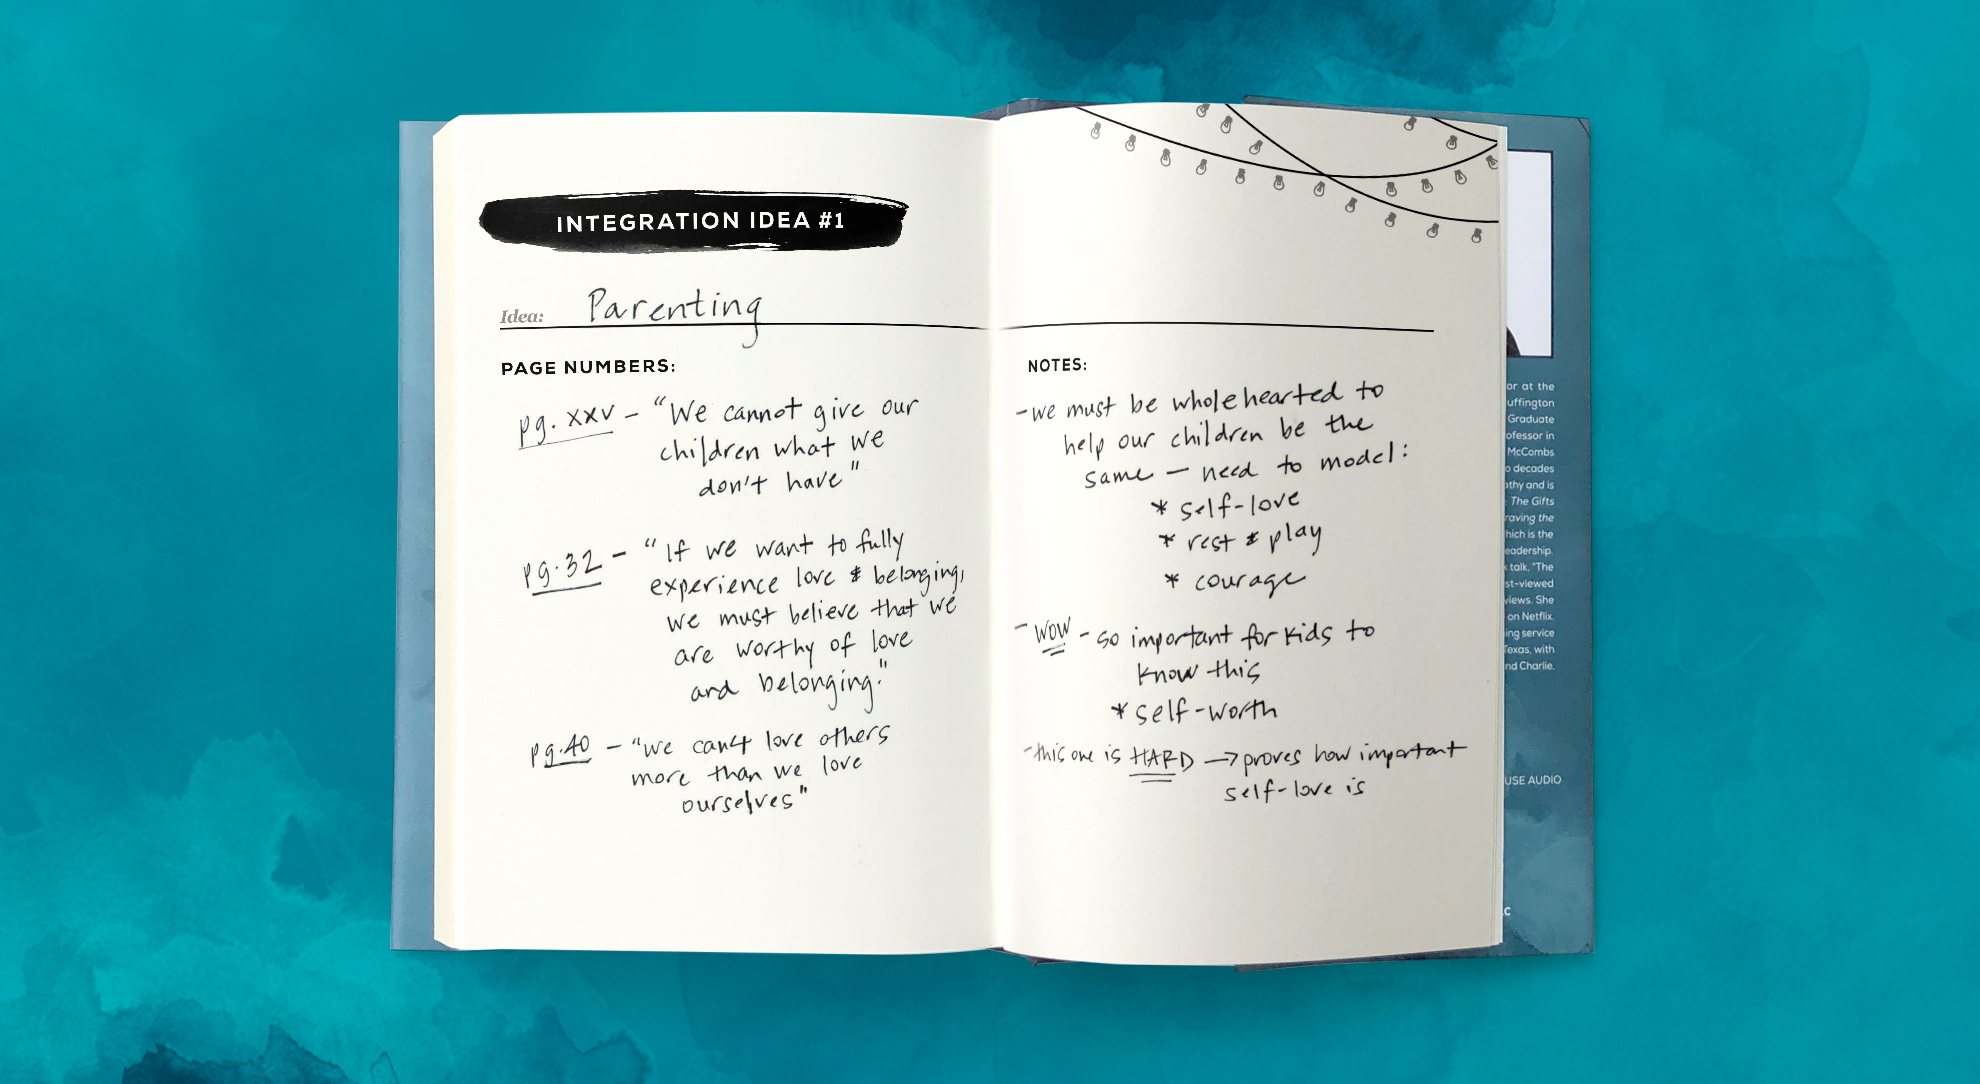 INTEGRATION IDEA #1
Idea: Parenting
PAGE NUMBERS:
pg. xxv – "We cannot give our
children what we
don't have"
pg. 32 – "If we want to fully
experience love & belonging,
we must believe that we
are worthy of love
and belonging."
pg. 40 – "we can't love others
more than we love
ourselves"
NOTES:
- we must be wholehearted to
help our children be the
same – need to model:
* self-love
* rest & play
* courage
- WOW - so important for kids to
know this
* self-worth
- this one is HARD → proves how important
self-love is
or at the
uffington
Graduate
ofessor in
McCombs
o decades
athy and is
: The Gifts
raving the
hich is the
eadership.
talk, "The
st-viewed
views. She
on Netflix.
ing service
Texas, with
nd Charlie.
USE AUDIO
LC